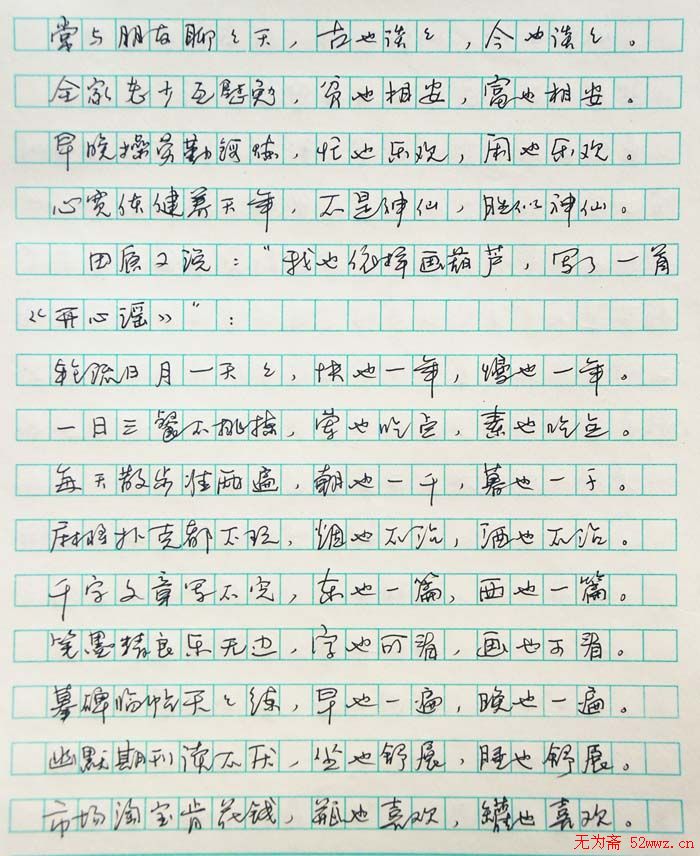 常与朋友聊々天，古也谈々，今也谈々。
全家老少互慰勉，贫也相安，富也相安。
早晚操劳勤锻炼，忙也乐欢，闲也乐欢。
心宽体健养天年，不是神仙，胜似神仙。
田原又说：“我也依样画葫芦，写了一首
《开心谣》”：
日月一天々，快也一年，慢也一年。
一日三餐不挑拣，荤也吃点，素也吃点。
每天散步往两遍，朝也一千，暮也一千。
麻将扑克都不玩，烟也不沾，酒也不沾。
千字文章写不完，东也一篇，西也一篇。
笔墨精良乐无边，字也可看，画也可看。
墓碑临帖天々练，早也一遍，晚也一遍。
幽默期刊读不厌，坐也舒展，睡也舒展。
市场淘宝肯花钱，瓶也喜欢，罐也喜欢。
无为斋 52wwz.cn